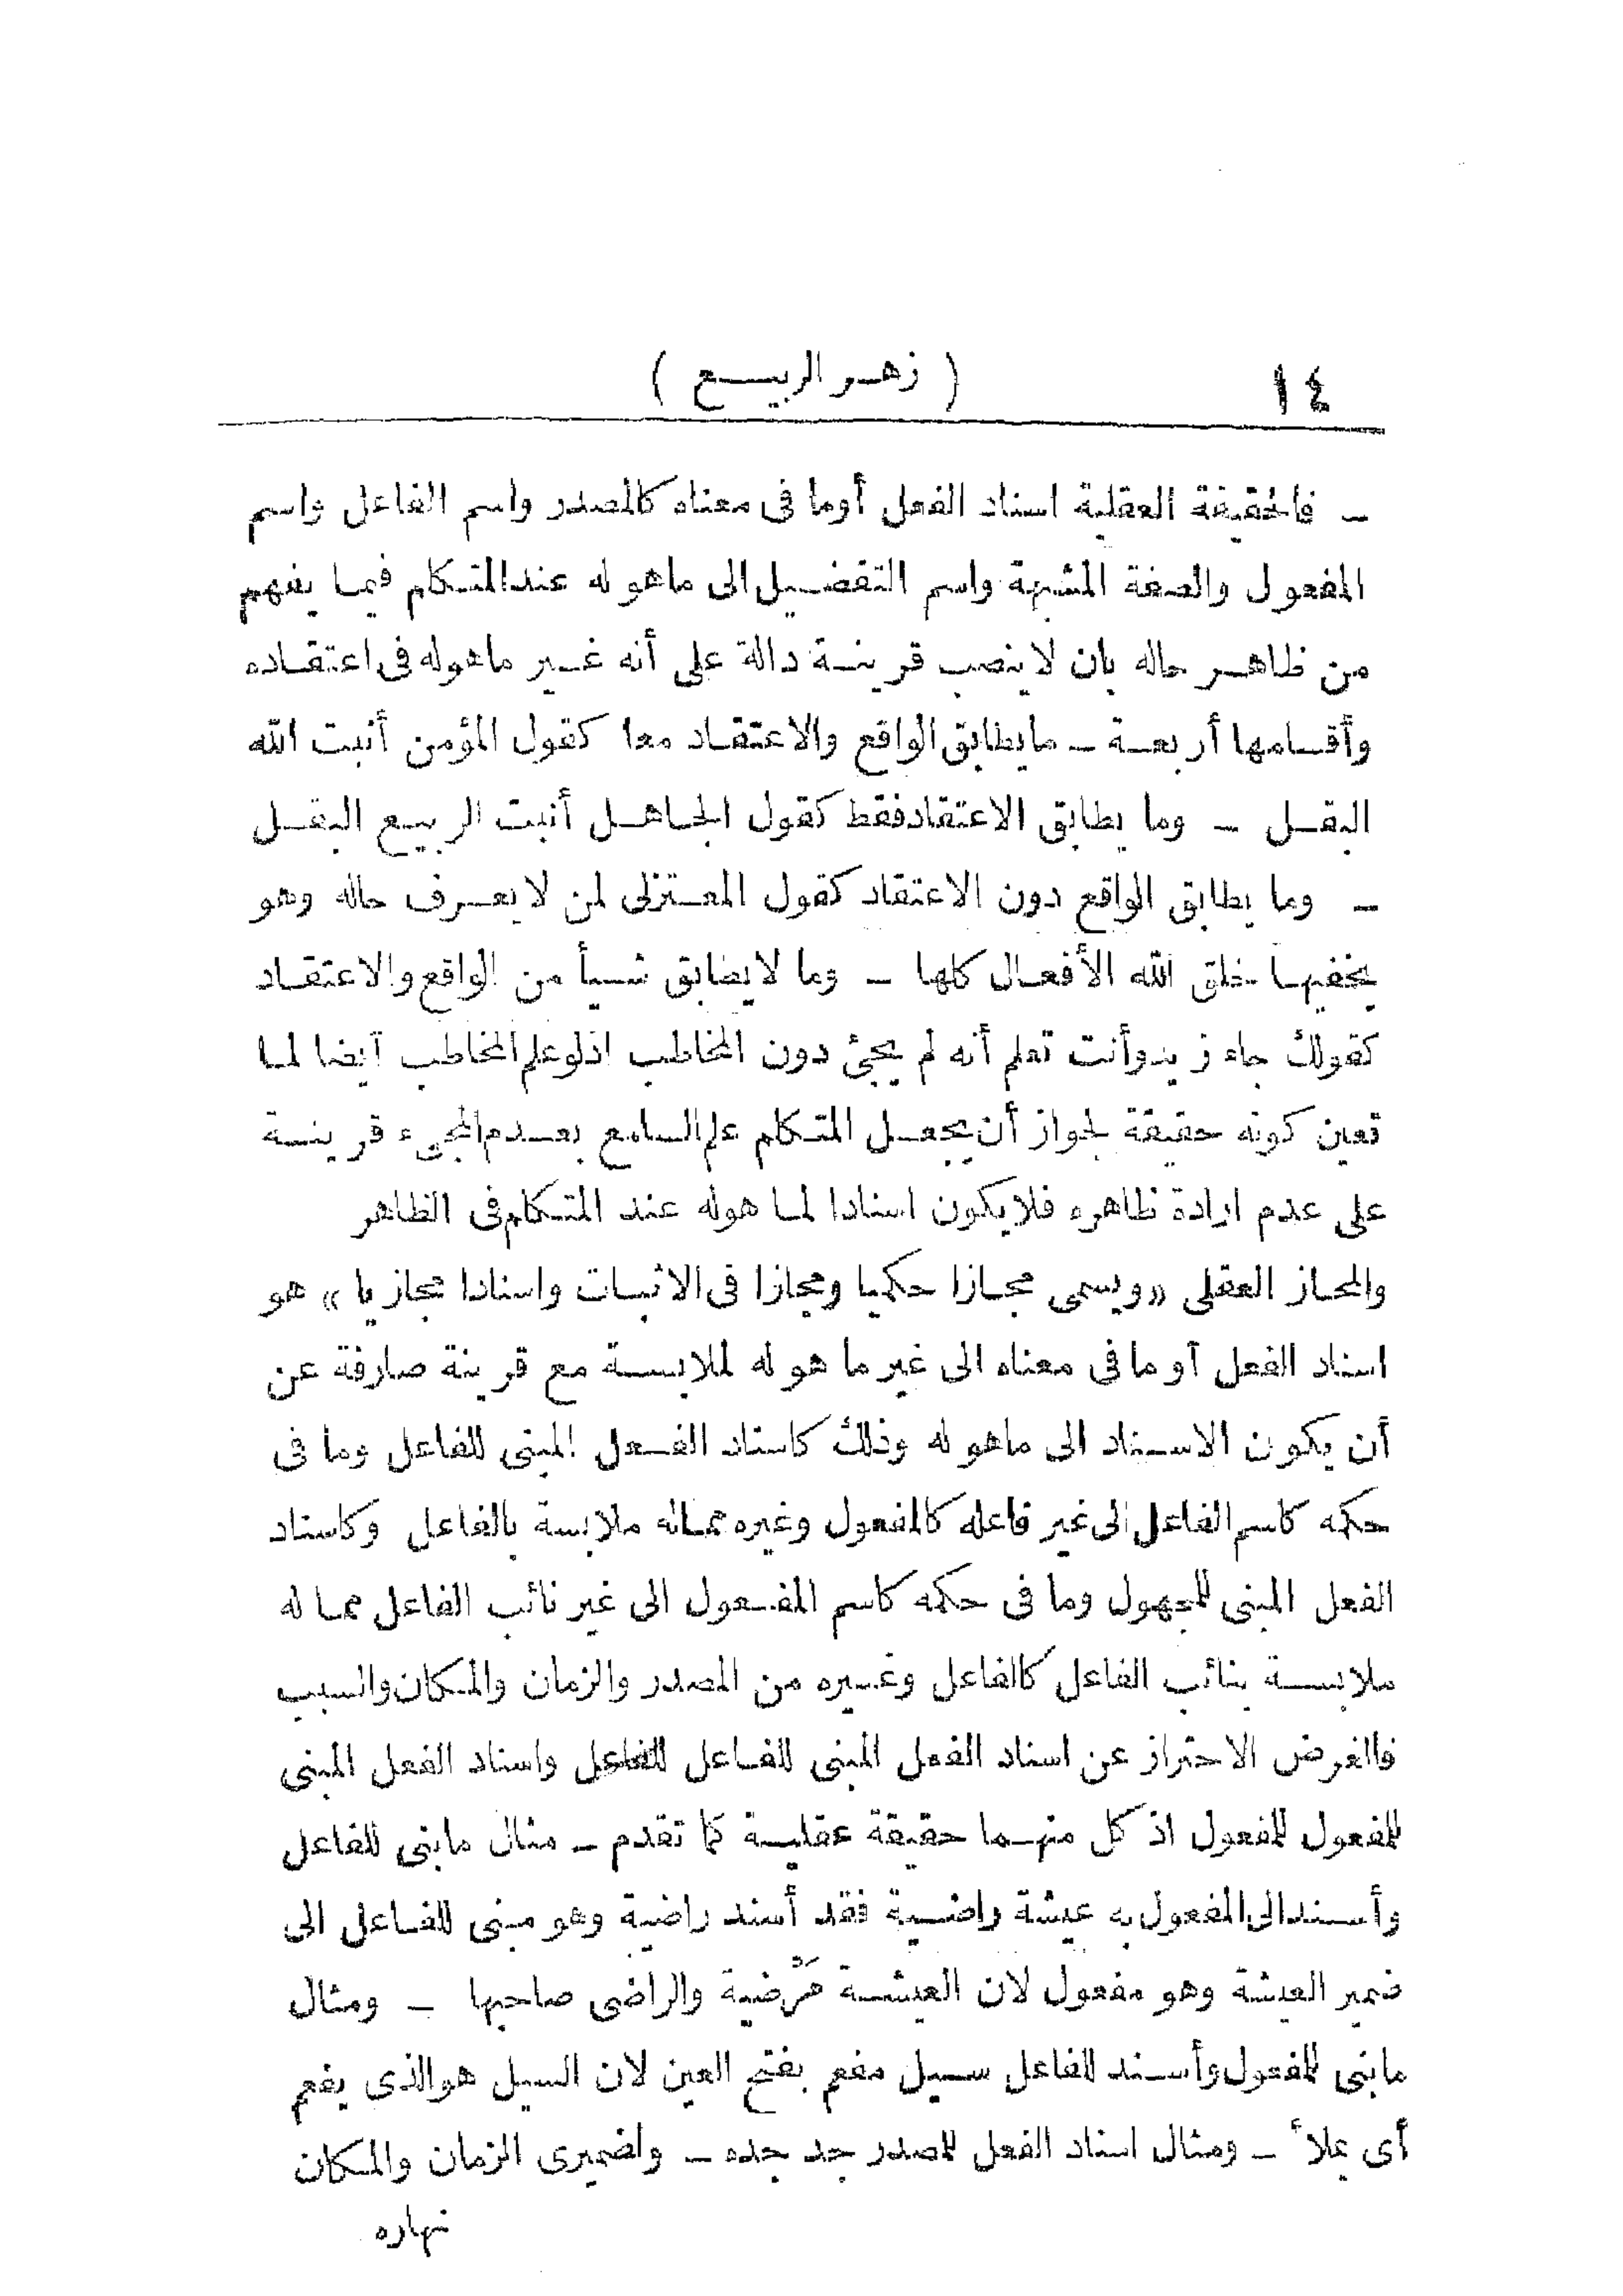 ١٤
( زهر الربيع )
ـ فالحقيقة العقلية اسناد الفعل أوما فى معناه كالمصدر واسم الفاعل واسم
المفعول والصفة المشبهة واسم التفضيل الى ماهو له عند المتكلم فيما يفهم
من ظاهر حاله بان لا ينصب قرينة دالة على أنه غير ماهوله فى اعتقاده
وأقسامها أربعة ـ مايطابق الواقع والاعتقاد معا كقول المؤمن أنبت الله
البقل ـ وما يطابق الاعتقاد فقط كقول الجاهل أنبت الربيع البقل
ـ وما يطابق الواقع دون الاعتقاد كقول المعتزلى لمن لا يعرف حاله وهو
يخفيها خلق الله الأفعال كلها ـ وما لا يطابق شيأ من الواقع والاعتقاد
كقولك جاء زيد وأنت تعلم أنه لم يجئ دون المخاطب اذلو علم المخاطب أيضا لما
تعين كونه حقيقة لجواز أن يجعل المتكلم علم السامع بعدم المجىء قرينة
على عدم ارادة ظاهره فلا يكون اسنادا لما هوله عند المتكلم فى الظاهر
والمجاز العقلى «ويسمى مجازا حكميا ومجازا فى الاثبات واسنادا مجازيا» هو
اسناد الفعل أو ما فى معناه الى غير ما هو له لملابسة مع قرينة صارفة عن
أن يكون الاسناد الى ماهو له وذلك كاسناد الفعل المبنى للفاعل وما فى
حكمه كاسم الفاعل الى غير فاعله كالمفعول وغيره مما له ملابسة بالفاعل وكاسناد
الفعل المبنى للمجهول وما فى حكمه كاسم المفعول الى غير نائب الفاعل مما له
ملابسة بنائب الفاعل كالفاعل وغيره من المصدر والزمان والمكان والسبب
فالغرض الاحتراز عن اسناد الفعل المبنى للفاعل للفاعل واسناد الفعل المبنى
للمفعول للمفعول اذ كل منهما حقيقة عقلية كما تقدم ـ مثال مابنى للفاعل
وأسند الى المفعول به عيشة راضية فقد أسند راضية وهو مبنى للفاعل الى
ضمير العيشة وهو مفعول لان العيشة مَرْضية والراضى صاحبها ـ ومثال
مابنى للمفعول وأسند للفاعل سيل مفعم بفتح العين لان السيل هو الذى يفعم
أى يملأ ـ ومثال اسناد الفعل للمصدر جد جده ـ ولضميرى الزمان والمكان
نهاره